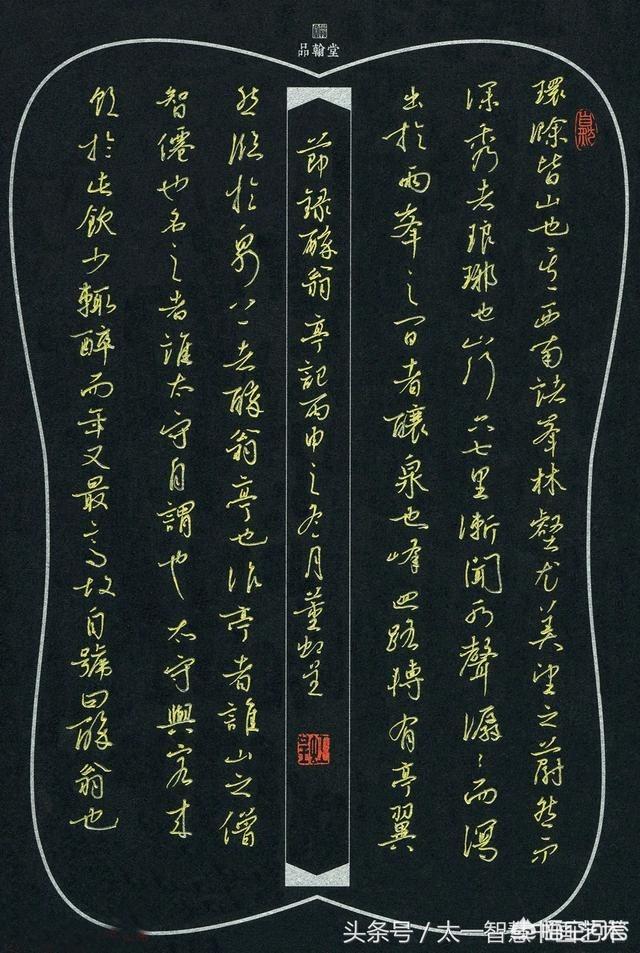 品翰堂
環滁皆山也其西南諸峯林壑尤美望之蔚然而
深秀者琅琊也山行六七里漸聞水聲潺〻而瀉
出於兩峯之間者釀泉也峰迴路轉有亭翼
節録醉翁亭記丙申之冬月董虹
然臨於泉上者醉翁亭也作亭者誰山之僧
智僊也名之者誰太守自謂也太守與客來
飲於此飲少輒醉而年又最高故自號曰醉翁也
头条号／太一智慧